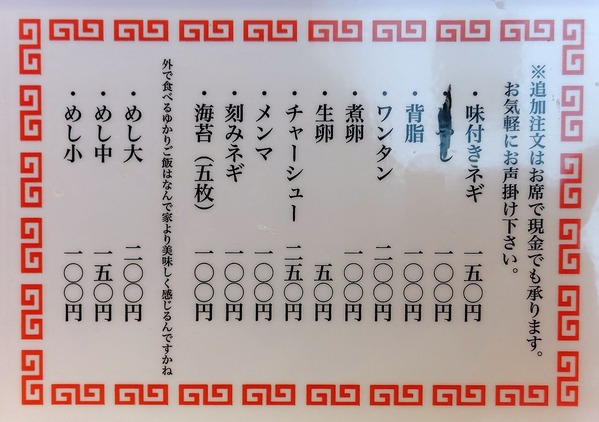 ※追加注文はお席で現金でも承ります。
お気軽にお声掛け下さい。
・味付きネギ 一五〇円
し 一〇〇円
・背脂 一〇〇円
・ワンタン 二〇〇円
・煮卵 一〇〇円
・生卵 五〇円
・チャーシュー 二五〇円
・メンマ 一〇〇円
・刻みネギ 一〇〇円
・海苔（五枚） 一〇〇円
外で食べるゆかりご飯はなんで家より美味しく感じるんですかね
・めし大 二〇〇円
・めし中 一五〇円
・めし小 一〇〇円